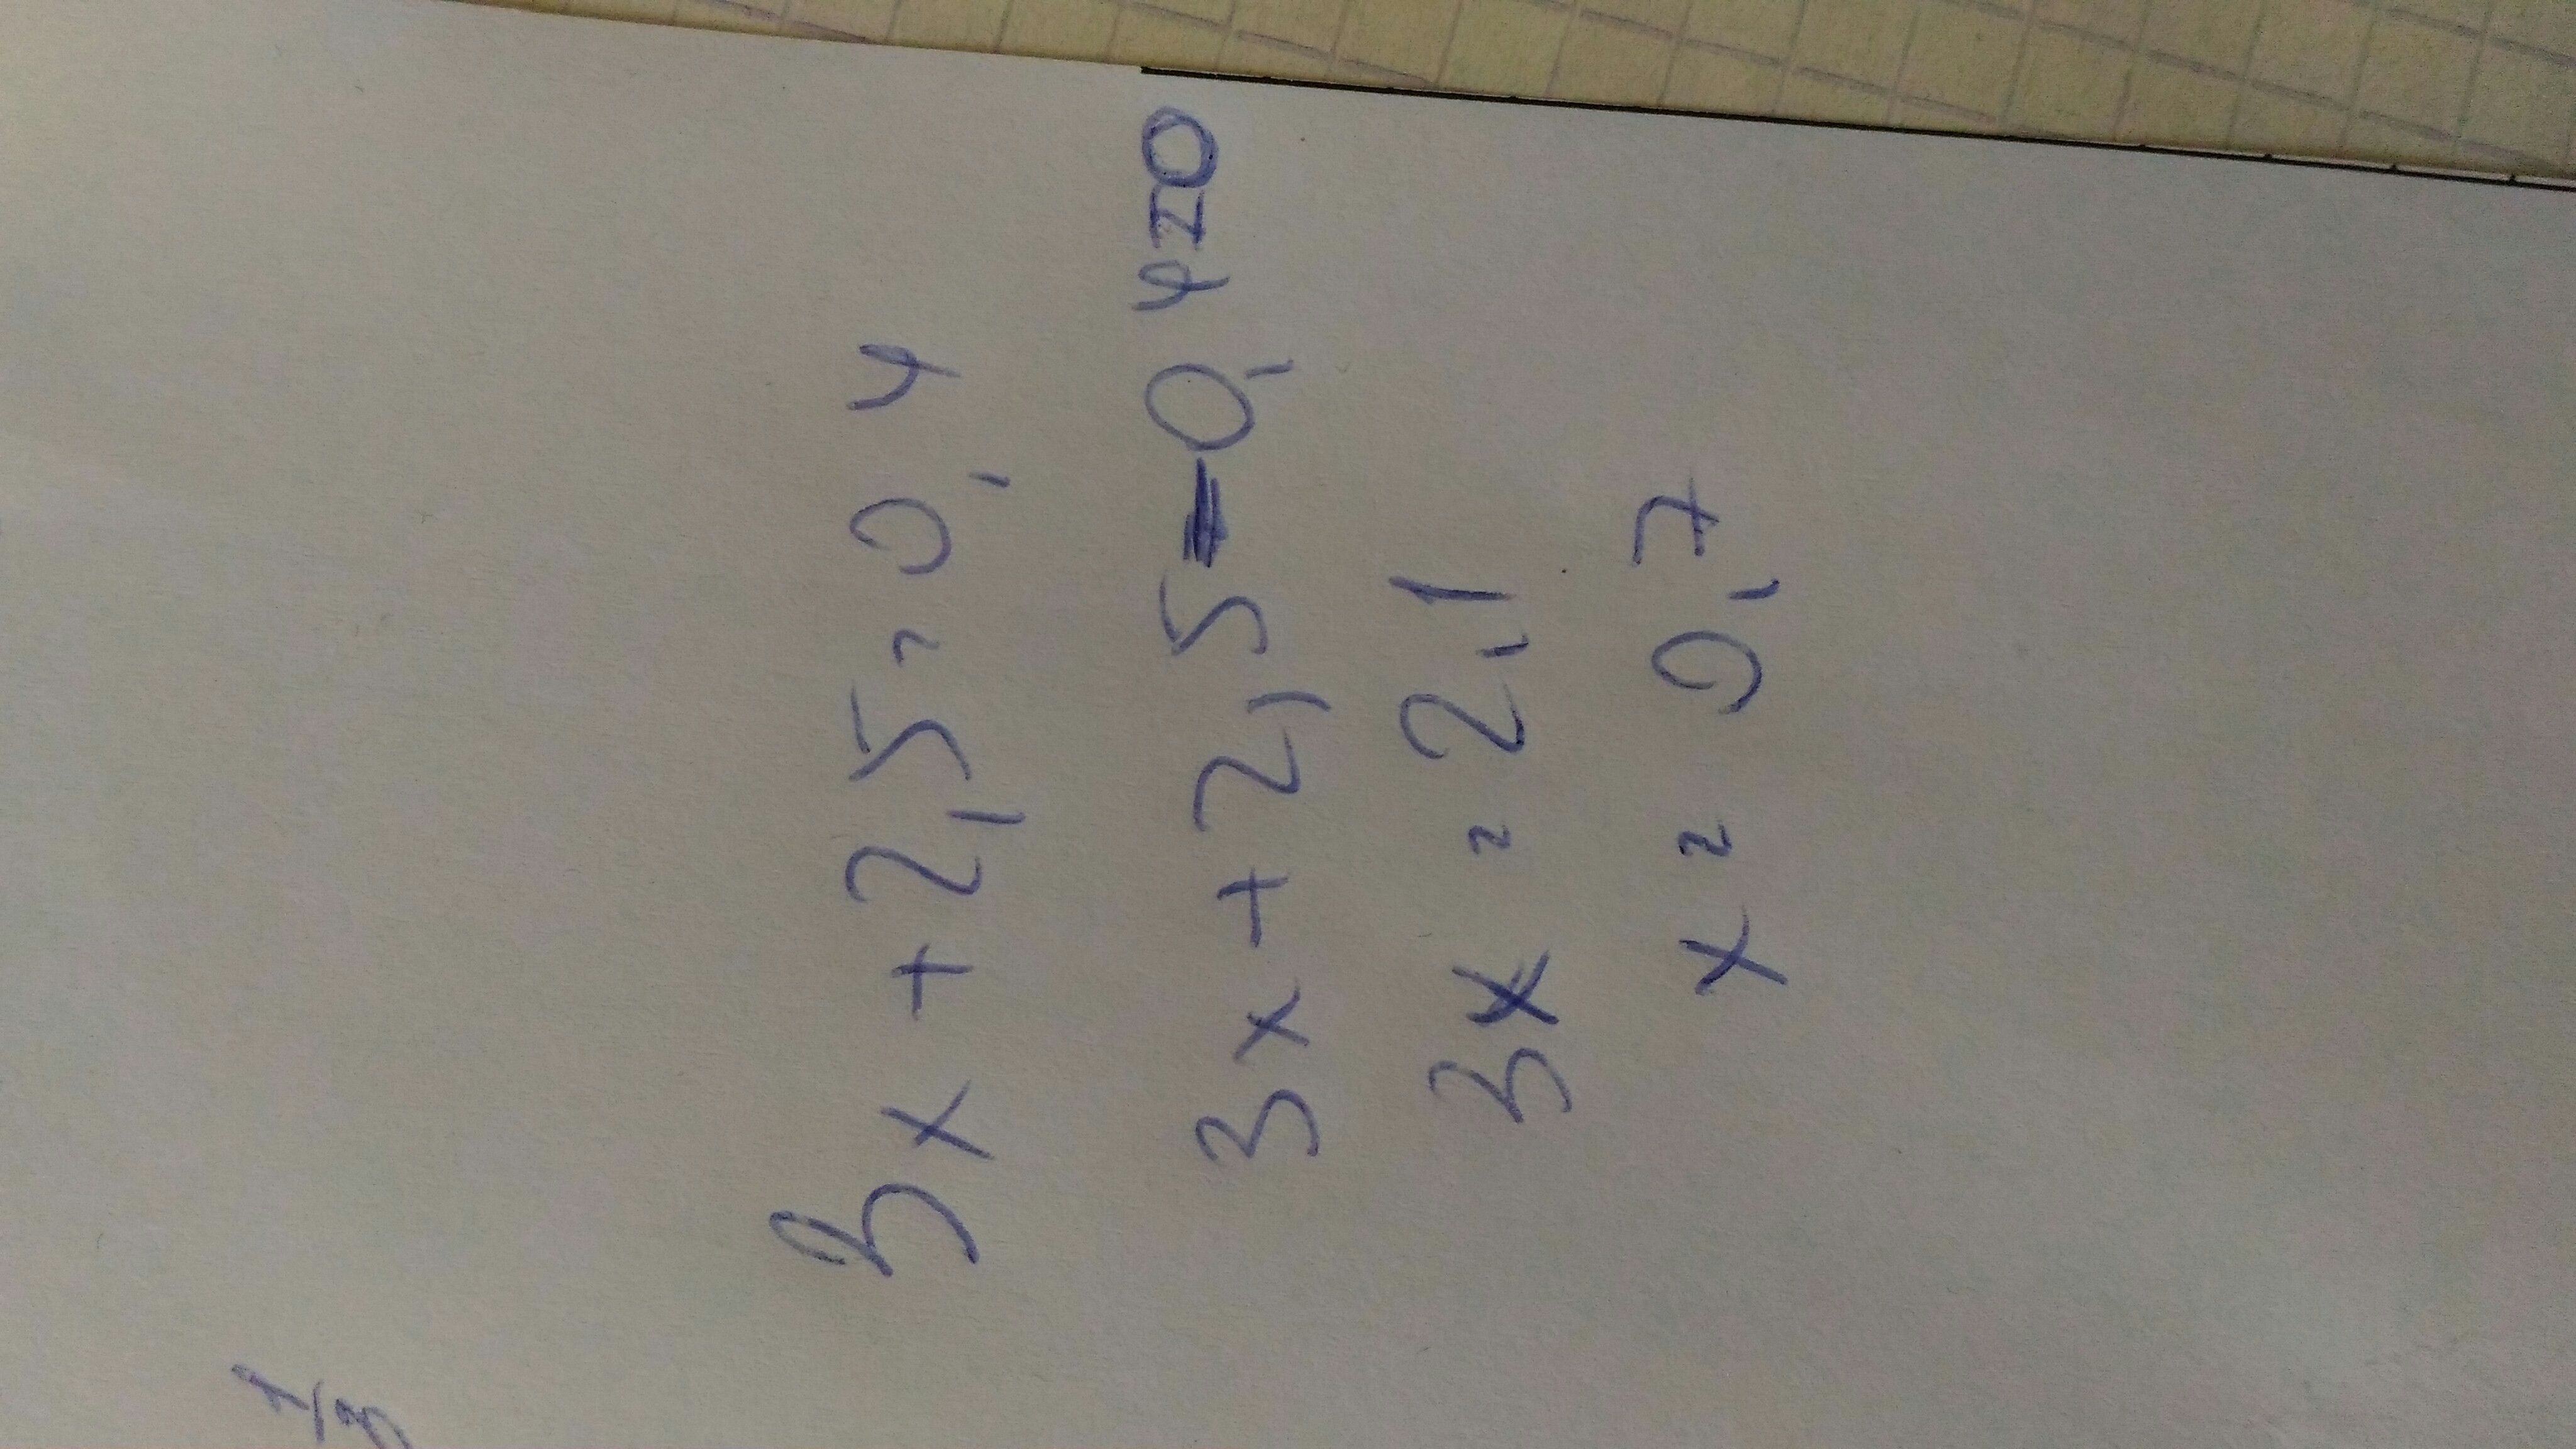 3x + 2,5 = 0,4
3x + 2,5 = 0,4=0
3x = 2,1
x = 0,7